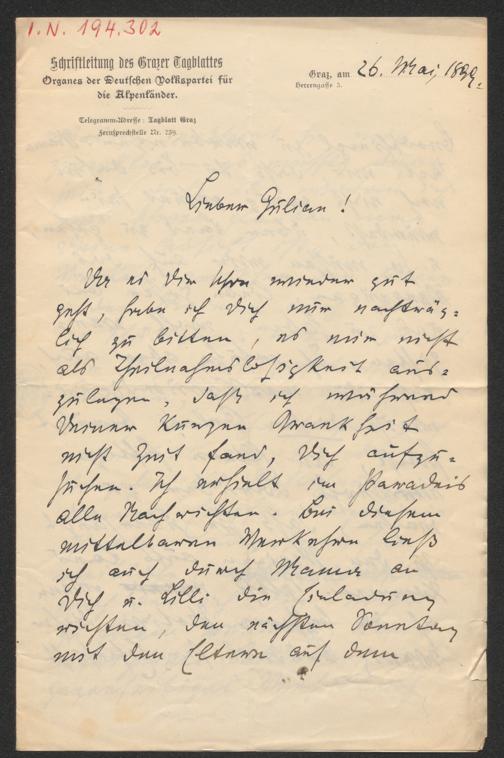 I.N. 194.302
Schriftleitung des Grazer Tagblattes
Organes der Deutschen Volkspartei für
die Alpenländer.
Telegramm-Adresse: Tagblatt Graz
Fernsprechstelle Nr. 239.
Graz, am 26. Mai, 1899.
Herrengasse 3.
Lieber Julian!
Da es Dir schon wieder gut
geht, habe ich Dich nur nachträg-
lich zu bitten, es mir nicht
als Theilnahmslosigkeit aus-
zulegen, daß ich während
Deiner kurzen Krankheit
nicht Zeit fand, Dich aufzu-
suchen. Ich erhielt im Paradeis
alle Nachrichten. Bei diesem
mittelbaren Verkehre ließ
ich auch durch Mama an
Dich u. Lilli die Einladung
richten, den nächsten Sonntag
mit den Eltern auf dem